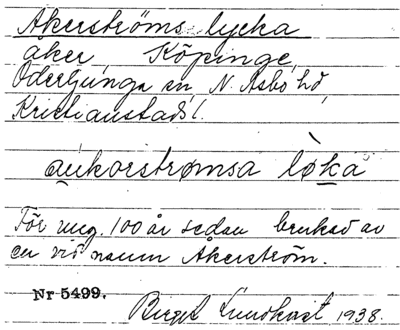 Åkerströms lycka
åker Köpinge,
Oderljunga sn, N. Åsbo hd,
Kristianstads l.
aukorstrømsa lø̀ka
För ung. 100 år sedan brukad av
en vid namn Åkerström.
Nr 5499.
Birgit Lundkvist 1938.